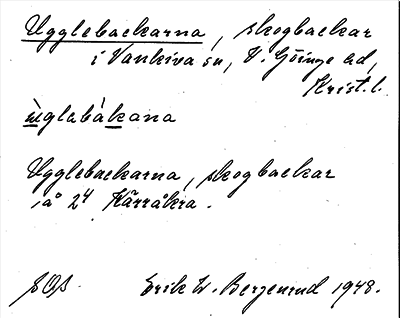 Ugglebackarna, skogbackar
i Vankiva sn, V. Göinge hd,
Krist. l.
ùglabákana
Ugglebackarna, skogbackar
å 24 Kärråkra.
Erik W. Bergenrud 1948.